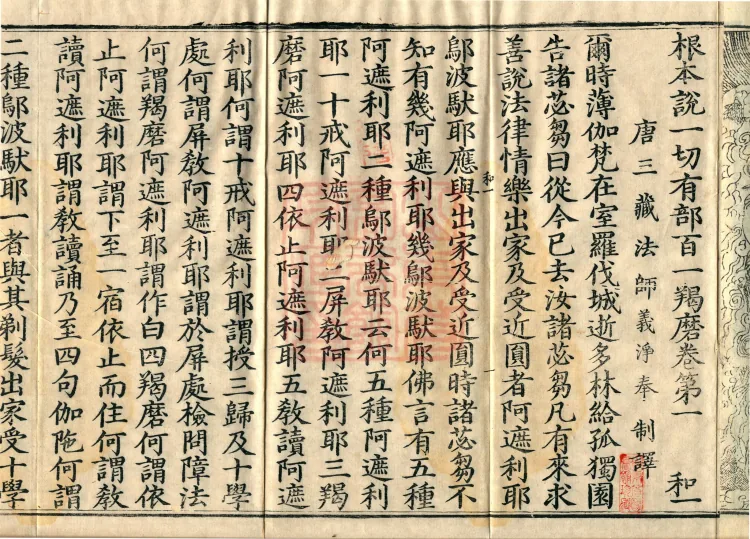 根本說一切有部百一羯磨卷第一 和一
唐三藏法師義淨奉 制譯
爾時薄伽梵在室羅伐城逝多林給孤獨園
告諸苾芻曰從今已去汝諸苾芻凡有來求
善說法律情樂出家及受近圓者阿遮利耶
鄔波馱耶應與出家及受近圓時諸苾芻不
和一
知有幾阿遮利耶幾鄔波馱耶佛言有五種
阿遮利耶二種鄔波馱耶云何五種阿遮利
耶一十戒阿遮利耶二屏教阿遮利耶三羯
磨阿遮利耶四依止阿遮利耶五教讀阿遮
利耶何謂十戒阿遮利耶謂授三歸及十學
處何謂屏教阿遮利耶謂於屏處檢問障法
何謂羯磨阿遮利耶謂作白四羯磨何謂依
止阿遮利耶謂下至一宿依止而住何謂教
讀阿遮利耶謂教讀誦乃至四句伽陁何謂
二種鄔波馱耶一者與其剃髮出家受十學